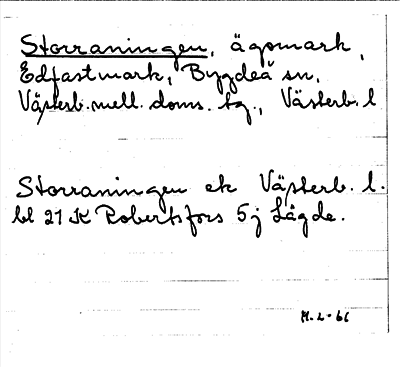 Storraningen, ägomark,
Edfastmark, Bygdeå sn,
Västerb. mell. doms. tg., Västerb. l
Storraningen ek Västerb. l.
bl 21 K Robertsfors 5j Lägde.
M.L-66